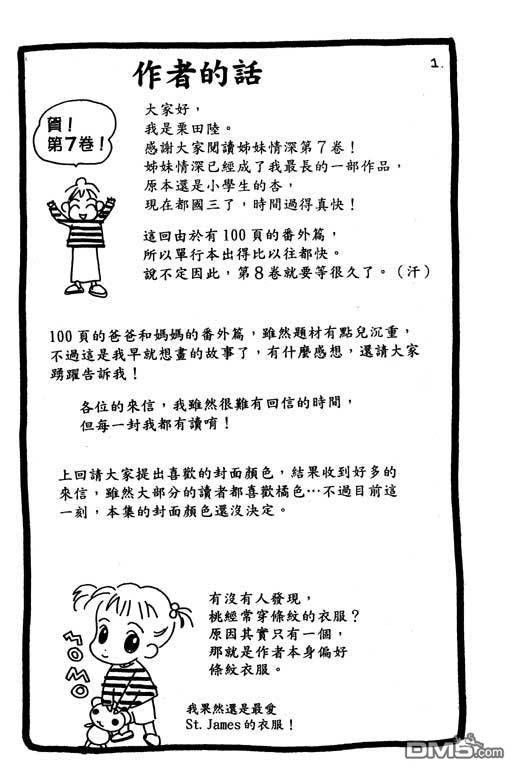 作者的話
1.
賀！
第7卷！
大家好，
我是栗田陸。
感謝大家閱讀姊妹情深第7卷！
姊妹情深已經成了我最長的一部作品，
原本還是小學生的杏，
現在都國三了，時間過得真快！
這回由於有100頁的番外篇，
所以單行本出得比以往都快。
說不定因此，第8卷就要等很久了。（汗）
100頁的爸爸和媽媽的番外篇，雖然題材有點兒沉重，
不過這是我早就想畫的故事了，有什麼感想，還請大家
踴躍告訴我！
各位的來信，我雖然很難有回信的時間，
但每一封我都有讀唷！
上回請大家提出喜歡的封面顏色，結果收到好多的
來信，雖然大部分的讀者都喜歡橘色…不過目前這
一刻，本集的封面顏色還沒決定。
有沒有人發現，
桃經常穿條紋的衣服？
原因其實只有一個，
那就是作者本身偏好
條紋衣服。
MOMO
我果然還是最愛
St. James的衣服！
DM5.com